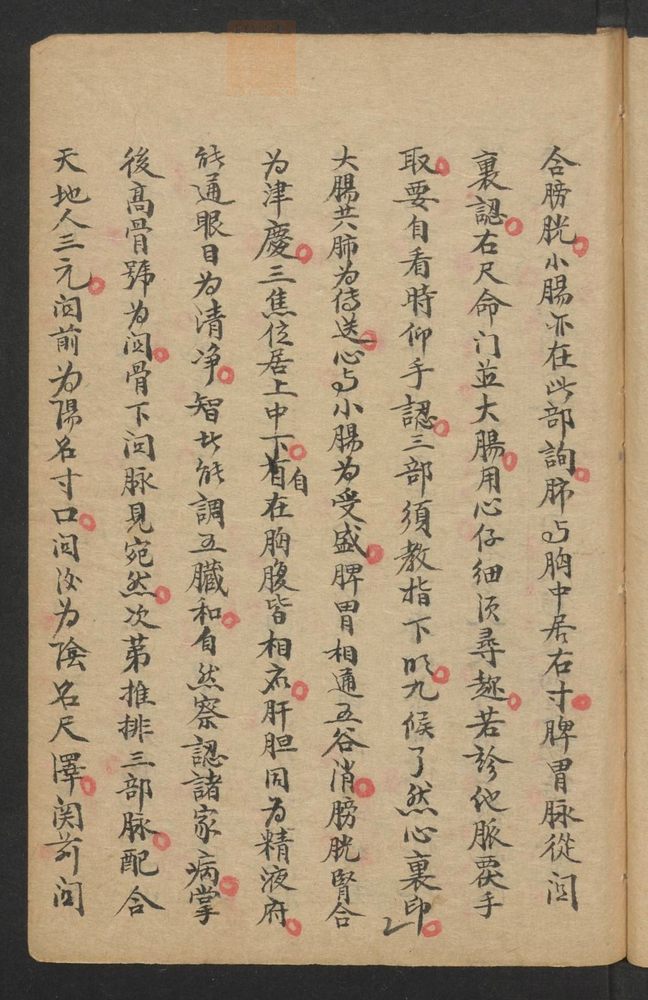 合膀胱小腸亦在此部詢肺与胸中居右寸脾胃脉從関
裏認右尺命门並大腸用心仔细须尋趂若診他脈覆手
取要自看時仰手認三部須教指下明九候了然心裏印
大腸共肺为傳送心与小腸为受盛脾胃相通五谷消膀胱腎合
为津慶三焦位居上中下自在胸腹皆相应肝胆同为精液府
能通眼目为清净智者能調五臓和自然察認諸家病掌
後髙骨號为関骨下関脉見宛然次第推排三部脉配合
天地人三元関前为陽名寸口関后为陰名尺澤関前関